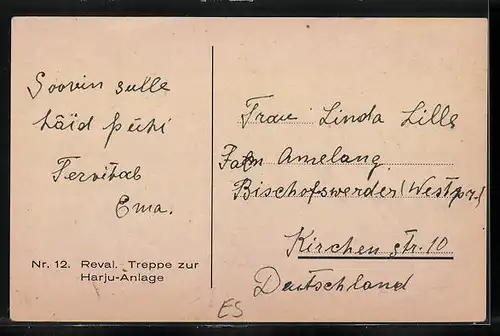 Soovin sulle
häid pühi
Tervitab
Ema.
Nr. 12. Reval. Treppe zur
Harju-Anlage
Frau Linda Lille
Fam Amelang
Bischofswerder (Westpr.)
Kirchen str. 10
Deutschland
ES